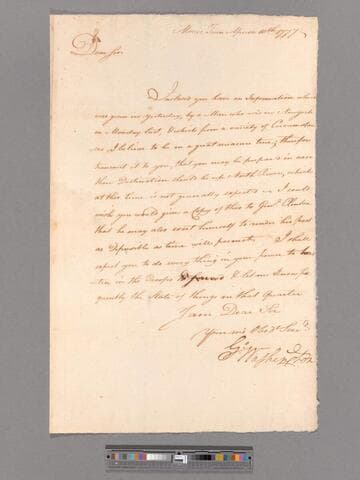 Morris Town April 10th 1777
Dear Sir
Inclosed you have an Information which
was given in Yesterday, by a Man who was in New York
on Monday last, & which from a variety of Circumstan-
ces I believe to be in a great measure true; I therefore
transmit it to you, that you may be prepared in case
their Destination should be up North River, which
at this time is not generally expected. I could
wish you would give a Copy of this to Genl. Clinton
that he may also exert himself to render his post
as as time will permit. I shall
expect you to do every thing in your power to
the Troops & let me know fre-
quently the State of things in that Quarter
I am Dear Sir
Your mo Obedt Servt.
Go Washington